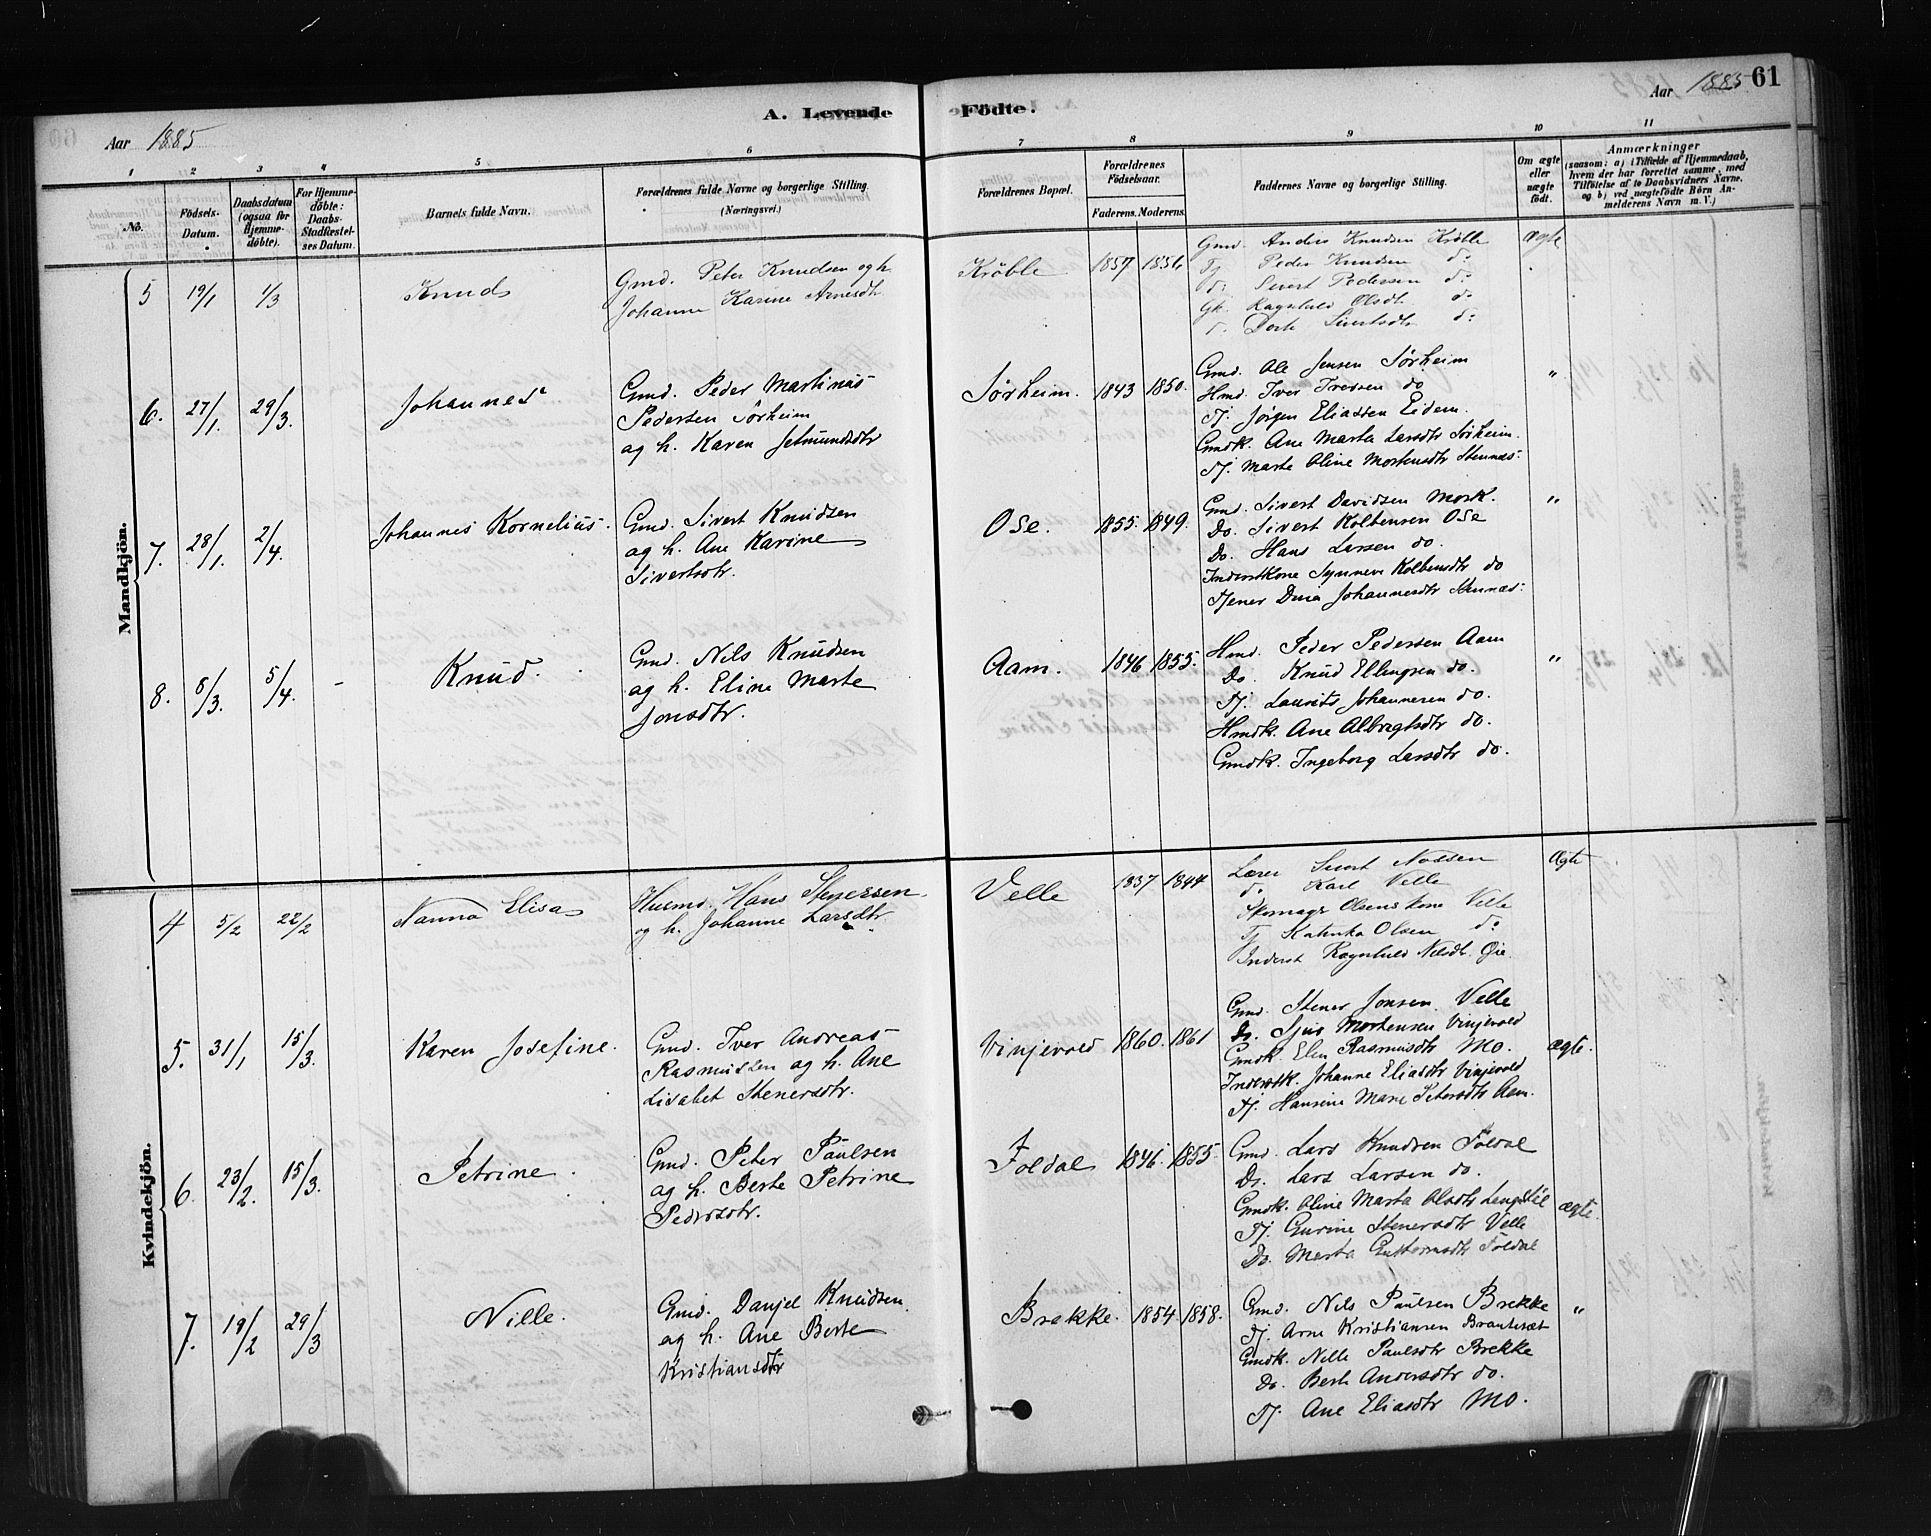 A. Levende Födte.
Aar 1885
Aar 1885 61
1 2 3 4 5 6 7 8 9 10 11
No.
Födsels-Datum.
Daabsdatum (ogsaa for Hjemme-döbte).
For Hjemme-döbte: Daabs-Stadfæstel-ses Datum.
Barnets fulde Navn.
Forældrenes fulde Navne og borgerlige Stilling. (Næringsvei.)
Forældrenes Bopæl.
Forældrenes Födselsaar.
Faderens. Moderens.
Faddernes Navne og borgerlige Stilling.
Om ægte eller uægte födt.
Anmærkninger
(saasom: a) i Tilfælde af Hjemmedaab, hvem der har forrettet samme, med Tilföielse af to Daabsvidners Navne, og b) ved uægtefödte Börn Anmelderens Navn m. V.)
Mandkjön.
5 19/1 1/3 Knud
Gmd. Peter Knudsen og h.
Johanne Karine Arnesdt.
Kröble 1857 1856
Gmd. Anders Knudsen Kröble
Tj Peder Knudsen do
do Sivert Pedersen do
Gk. Ragnhild Olsdt. do
d. Dorte Sivertsdtr do
ægte
6. 27/1. 29/3. Johannes
Gmd. Peder Martinus
Pedersen Sörheim
og h. Karen Jetmundsdtr
Sörheim. 1843 1850.
Gmd. Ole Jensen Sörheim
Hmd. Iver Iversen do
Tj. Jörgen Eliassen Eidem.
Gmdk. Ane Marta Larsdtr Sörheim.
Tj. Marte Oline Mortensdtr Stennæs.
"
7. 28/1. 2/4. Johannes Kornelius.
Gmd. Sivert Knudsen
og h. Ane Karine
Sivertsdtr.
Ose. 1855. 1849.
Gmd. Sivert Davidsen Mork.
Do. Sivert Kolbensen Ose
Do. Hans Larsen do.
Inderstkone Synneve Kolbensdtr do
Tjener Dina Johannesdtr Stennæs.
"
8. 8/3. 5/4. - Knud.
Gmd. Nils Knudsen
og h. Eline Marte
Jonsdtr.
Aam. 1846 1855.
Hmd. Peder Pedersen Aam
Do. Knud Ellingsen do.
Tj. Laurits Johannesen do.
Hmdk. Ane Albregtsdtr do.
Gmdk. Ingeborg Larsdtr do.
"
Kvindekjön.
4 5/2 22/2 Nanna Elisa
Husmd. Hans Stenersen
og h. Johanne Larsdtr
Velle 1837 1844
Lærer Sivert Nossen
d. Karl Velle
Skomagr Olsens kone Velle
Tj Kathinka Olsen do
Inderst Ragnhild Nilsdt. Øie.
Ægte
5. 31/1 15/3 Karen Josefine.
Gmd. Iver Andreas
Rasmussen og h. Ane
Lisabet Stenersdtr.
Vinjevold 1860. 1861
Gmd. Stener Jonsen Velle
Do. Sjur Mortensen Vinjevold
Gmdk. Elen Rasmusdtr Mo.
Inderstk. Johanne Eliasdtr Vinjevold
Tj. Hansine Marie Petersdtr Aam.
ægte.
6. 23/2. 15/3. Petrine.
Gmd. Peter Paulsen
og h. Berte Petrine
Pedersdtr.
Foldal 1846. 1855.
Gmd. Lars Knudsen Foldal
Do. Lars Larsen do.
Gmdk. Oline Marta Olsdtr
Tj. Gurine Stenersdtr Velle
Do. Marta Guttormsdtr Foldal
ægte.
7. 19/2 29/3 Nille.
Gmd. Danjel Knudsen
og h. Ane Berte
Kristiansdtr
Brekke. 1854 1858.
Gmd. Nils Paulsen Brekke
Tj. Arne Kristiansen
Gmdk. Nille Paulsdtr Brekke
Do. Berte Andersdtr do.
Tj. Ane Eliasdtr Mo.
"